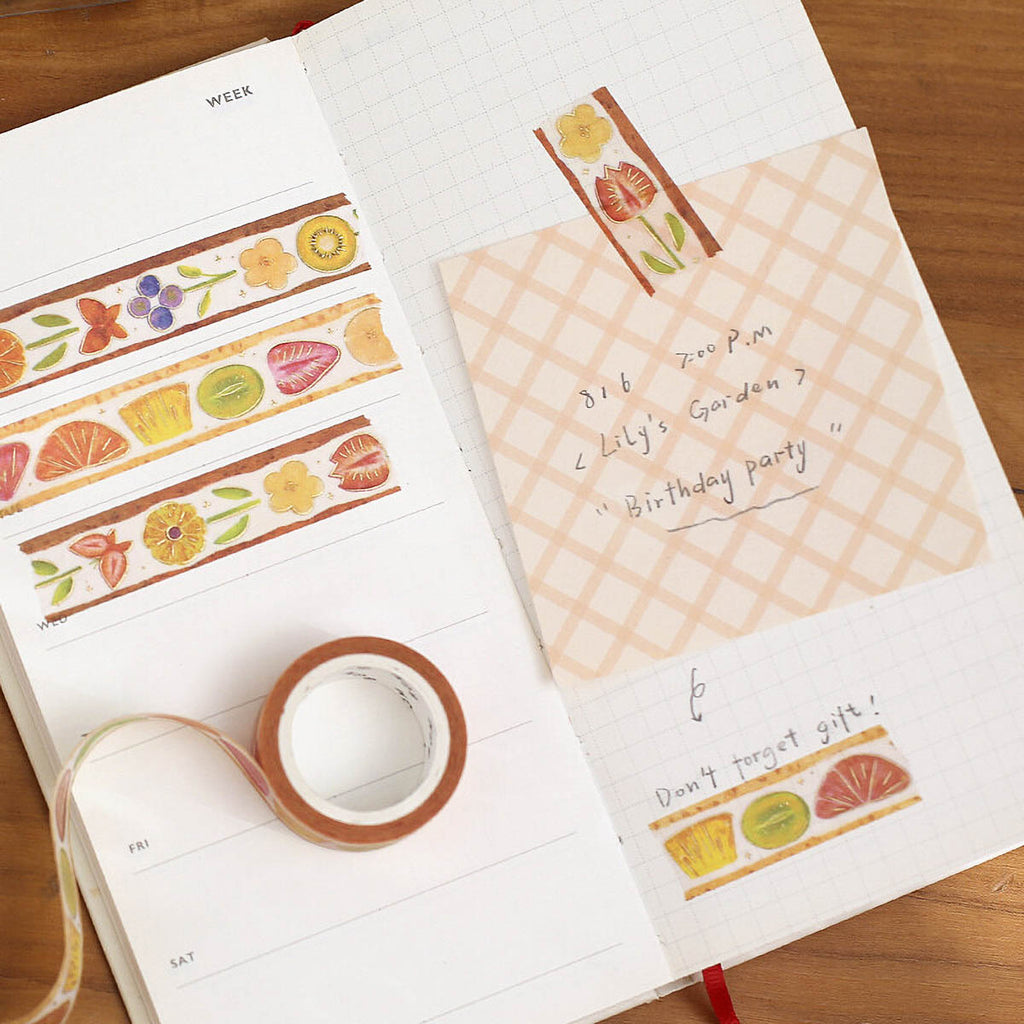 WEEK
WED
FRI
SAT
7:00 P.M
816
< Lily's Garden >
"Birthday party"
Don't forget gift!